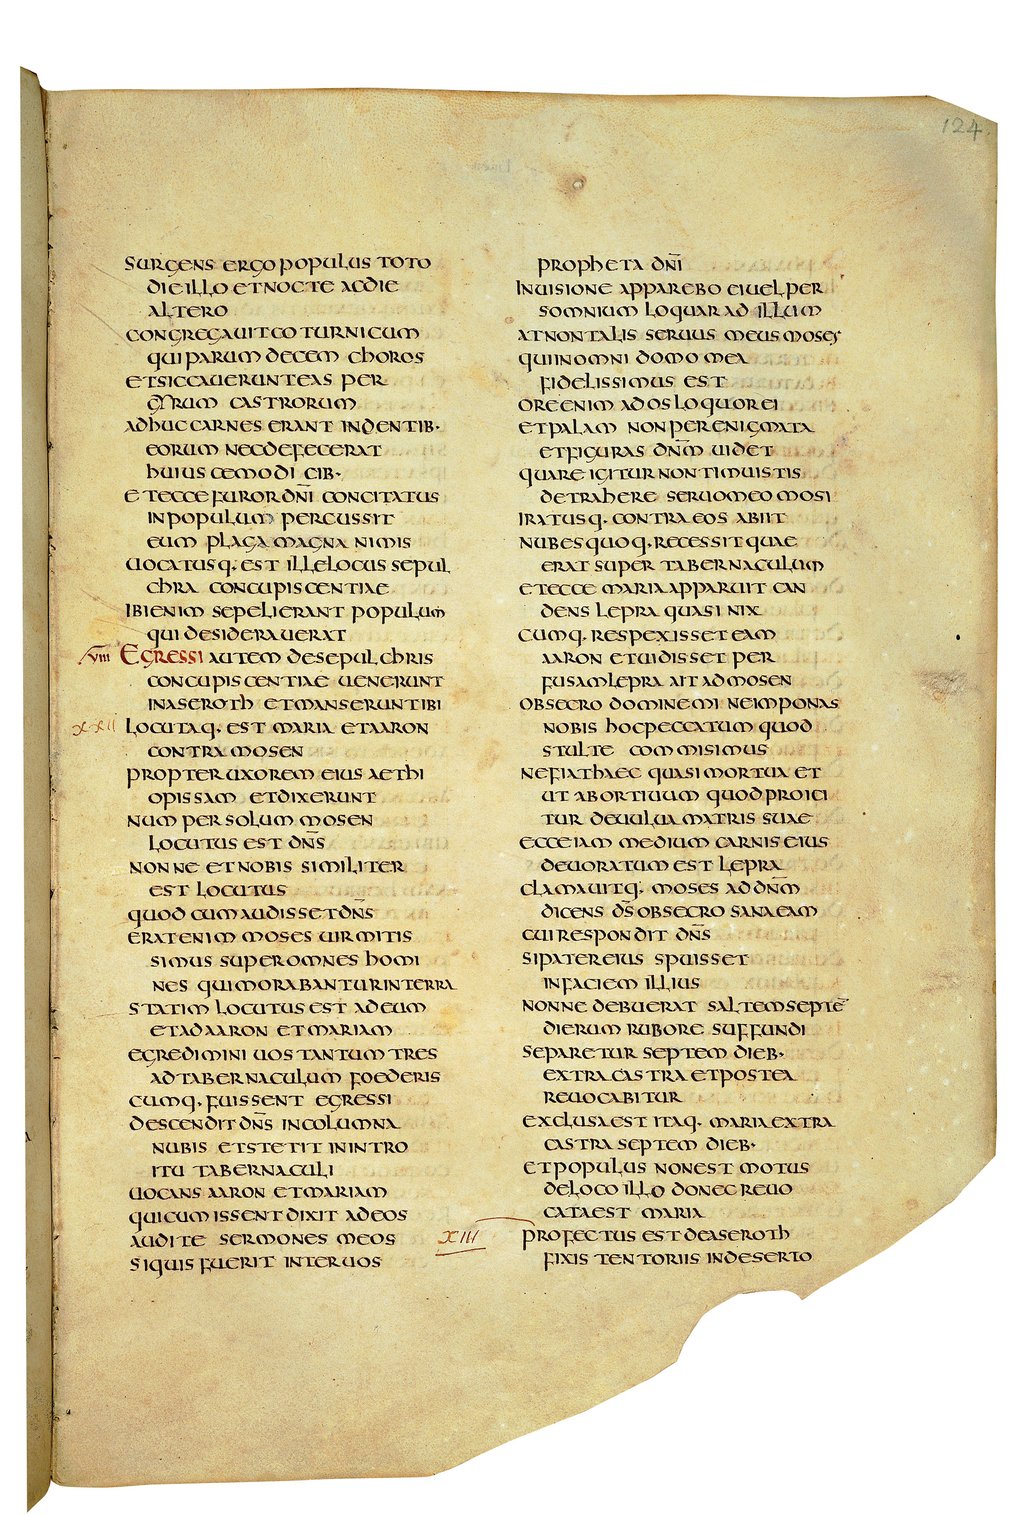 124.
SURGENS ERGO POPULUS TOTO
DIE ILLO ET NOCTE AC DIE
ALTERO
CONGREGAUIT COTURNICUM
QUI PARUM DECEM CHOROS
ET SICCAUERUNT EAS PER
GYRUM CASTRORUM
ADHUC CARNES ERANT IN DENTIB·
EORUM NEC DEFECERAT
HUIUSCEMODI CIB·
ET ECCE FUROR DN̄I CONCITATUS
IN POPULUM PERCUSSIT
EUM PLAGA MAGNA NIMIS
UOCATUSQ· EST ILLE LOCUS SEPUL
CHRA CONCUPISCENTIAE
IBI ENIM SEPELIERANT POPULUM
QUI DESIDERAUERAT
XVIII EGRESSI AUTEM DE SEPULCHRIS
CONCUPISCENTIAE UENERUNT
IN ASEROTH ET MANSERUNT IBI
XXII LOCUTAQ· EST MARIA ET AARON
CONTRA MOSEN
PROPTER UXOREM EIUS AETHI
OPISSAM ET DIXERUNT
NUM PER SOLUM MOSEN
LOCUTUS EST DN̄S
NONNE ET NOBIS SIMILITER
EST LOCUTUS
QUOD CUM AUDISSET DN̄S
ERAT ENIM MOSES UIR MITIS
SIMUS SUPER OMNES HOMI
NES QUI MORABANTUR IN TERRA
STATIM LOCUTUS EST AD EUM
ET AD AARON ET MARIAM
EGREDIMINI UOS TANTUM TRES
AD TABERNACULUM FOEDERIS
CUMQ· FUISSENT EGRESSI
DESCENDIT DN̄S IN COLUMNA
NUBIS ET STETIT IN INTRO
ITU TABERNACULI
UOCANS AARON ET MARIAM
QUI CUM ISSENT DIXIT AD EOS
AUDITE SERMONES MEOS
SI QUIS FUERIT INTER UOS
PROPHETA DN̄I
IN UISIONE APPAREBO EI UEL PER
SOMNIUM LOQUAR AD ILLUM
AT NON TALIS SERUUS MEUS MOSES
QUI IN OMNI DOMO MEA
FIDELISSIMUS EST
ORE ENIM AD OS LOQUOR EI
ET PALAM NON PER ENIGMATA
ET FIGURAS DN̄M UIDET
QUARE IGITUR NON TIMUISTIS
DETRAHERE SERUO MEO MOSI
IRATUSQ· CONTRA EOS ABIIT
NUBES QUOQ· RECESSIT QUAE
ERAT SUPER TABERNACULUM
ET ECCE MARIA APPARUIT CAN
DENS LEPRA QUASI NIX
CUMQ· RESPEXISSET EAM
AARON ET UIDISSET PER
FUSAM LEPRA AIT AD MOSEN
OBSECRO DOMINE MI NE IMPONAS
NOBIS HOC PECCATUM QUOD
STULTE COMMISIMUS
NE FIAT HAEC QUASI MORTUA ET
UT ABORTIUUM QUOD PROICI
TUR DE UULUA MATRIS SUAE
ECCE IAM MEDIUM CARNIS EIUS
DEUORATUM EST LEPRA
CLAMAUITQ· MOSES AD DN̄M
DICENS D̄S OBSECRO SANA EAM
CUI RESPONDIT DN̄S
SI PATER EIUS SPUISSET
IN FACIEM ILLIUS
NONNE DEBUERAT SALTEM SEPTĒ
DIERUM RUBORE SUFFUNDI
SEPARETUR SEPTEM DIEB·
EXTRA CASTRA ET POSTEA
REUOCABITUR
EXCLUSA EST ITAQ· MARIA EXTRA
CASTRA SEPTEM DIEB·
ET POPULUS NON EST MOTUS
DE LOCO ILLO DONEC REUO
CATA EST MARIA
XIII PROFECTUS EST DE ASEROTH
FIXIS TENTORIIS IN DESERTO